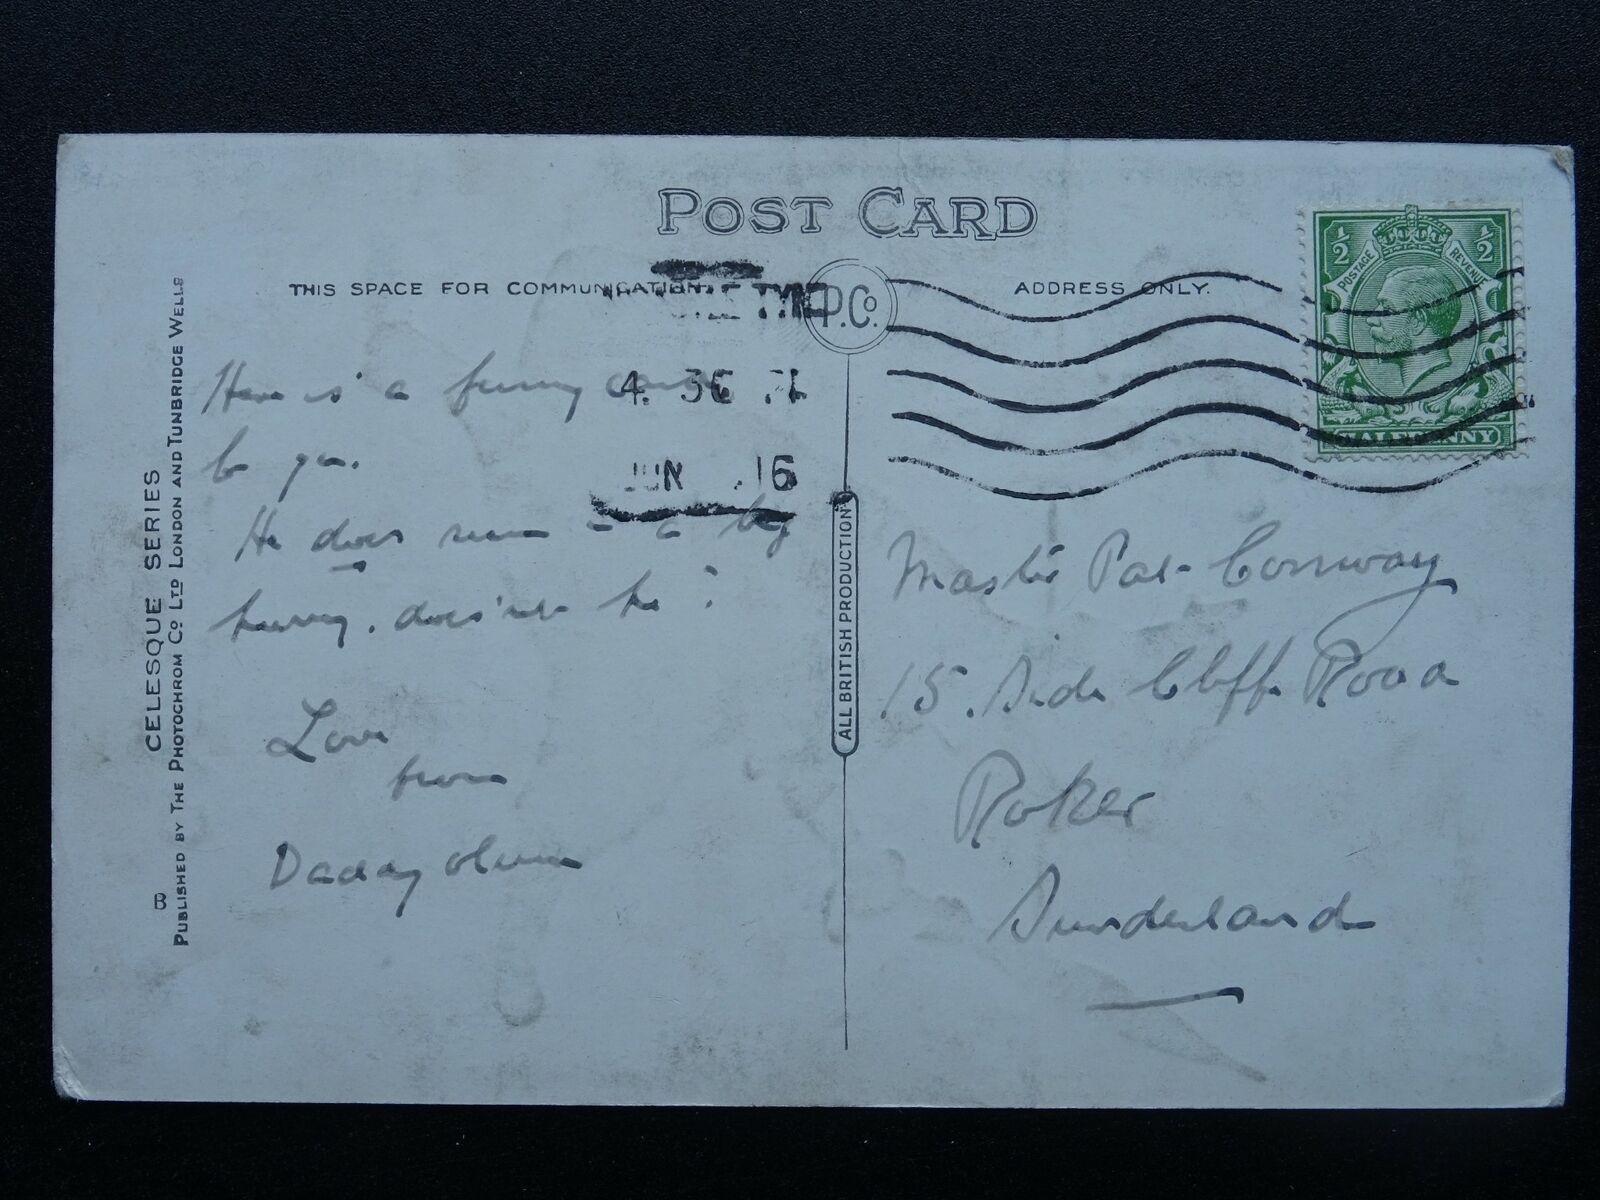 POST CARD
THIS SPACE FOR COMMUNICATION.
ADDRESS ONLY.
P.Co.
TYNE
4. 30
JUN 16
½ ½
POSTAGE REVENUE
HALFPENNY
Here is a funny
to you.
He does seem in a big
hurry. does'nt he?
Love
from
Daddy
Master Pat Conway
15. Side Cliff Road
Roker
Sunderland
ALL BRITISH PRODUCTION
CELESQUE SERIES
PUBLISHED BY THE PHOTOCHROM CO LTD LONDON AND TUNBRIDGE WELLS
B